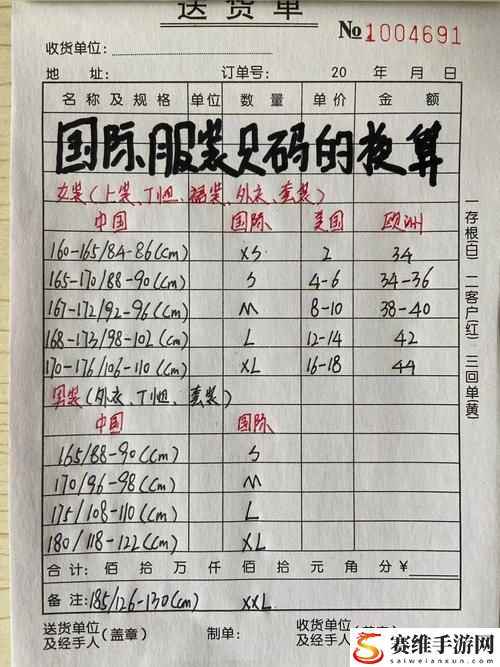 送货单
№1004691
收货单位:
地 址: 订单号: 20 年 月 日
名称及规格 单位 数量 单价 金额
国际服装尺码的换算
女装(上装、T恤、裙装、外衣、套装)
中国 国际 美国 欧洲
160-165/84-86(cm) XS 2 34
165-170/88-90(cm) S 4-6 34-36
167-172/92-96(cm) M 8-10 38-40
168-173/98-102(cm) L 12-14 42
170-176/106-110(cm) XL 16-18 44
男装(外衣、T恤、套装)
中国 国际
165/88-90(cm) S
170/96-98(cm) M
175/108-110(cm) L
180/118-122(cm) XL
合计: 佰 拾 万 仟 佰 拾 元 角 分 ¥
备注: 185/126-130(cm) XXL
送货单位及经手人(盖章) 制单: 收货单位及经手人(盖章)
一存根(白) 二客户(红) 三回单(黄)
赛维手游网
www.saiweianxun.com